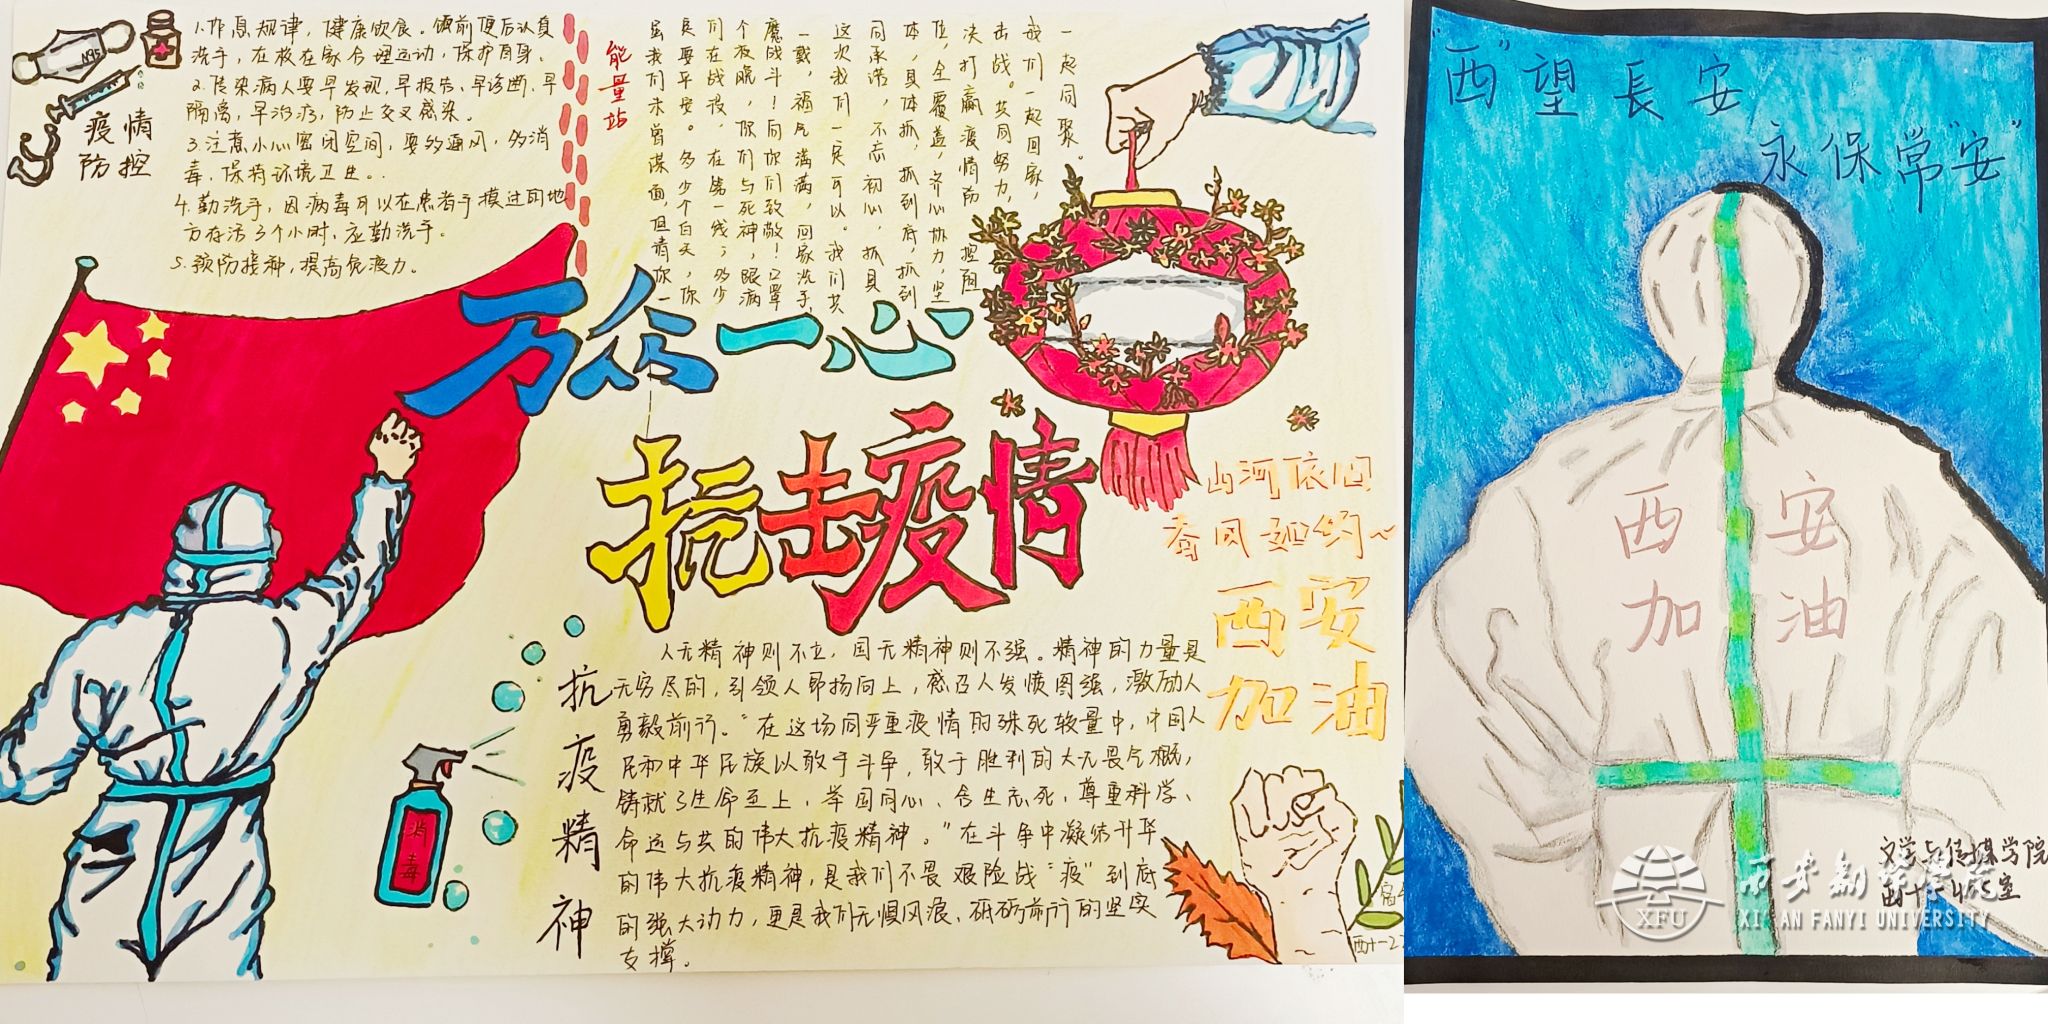 N95
疫情
防控
1.作息规律，健康饮食。饭前便后认真
洗手，在校在家合理运动，保护自身。
2.传染病人要早发现，早报告，早诊断，早
隔离，早治疗，防止交叉感染。
3.注意小心密闭空间，要多通风，多消
毒，保持环境卫生。
4.勤洗手，因病毒可以在患者手摸过的地
方存活3个小时，应勤洗手。
5.预防接种，提高免疫力。
能量站
虽我们未曾谋面，但请你一
定要平安。多少个白天，你
们在战役，在第一线；多少
个夜晚，你们与死神，跟病
魔战斗！向你们致敬！口罩
一戴，福气满满，回家洗手，
这次我们一定可以。我们共
同承诺，不忘初心，抓具
体，具体抓，抓到底，抓到
位，全覆盖，齐心协力，坚
决打赢疫情防控阻
击战。共同努力，
我们一起回家，
一起同聚。
万众一心
抗击疫情
山河依旧
春风如约~
西安
加油
消毒
抗疫精神
人无精神则不立，国无精神则不强。精神的力量是
无穷尽的，引领人昂扬向上，感召人发愤图强，激励人
勇毅前行。"在这场同严重疫情的殊死较量中，中国人
民和中华民族以敢于斗争，敢于胜利的大无畏气概，
铸就了生命至上，举国同心、舍生忘死，尊重科学、
命运与共的伟大抗疫精神。"在斗争中凝结升华
的伟大抗疫精神，是我们不畏艰险战"疫"到底
的强大动力，更是我们无惧风浪、砥砺前行的坚实
支撑。
"西"望長安
永保常"安"
西安
加油
文学与传媒学院
西安翻译学院
XFU
XI'AN FANYI UNIVERSITY